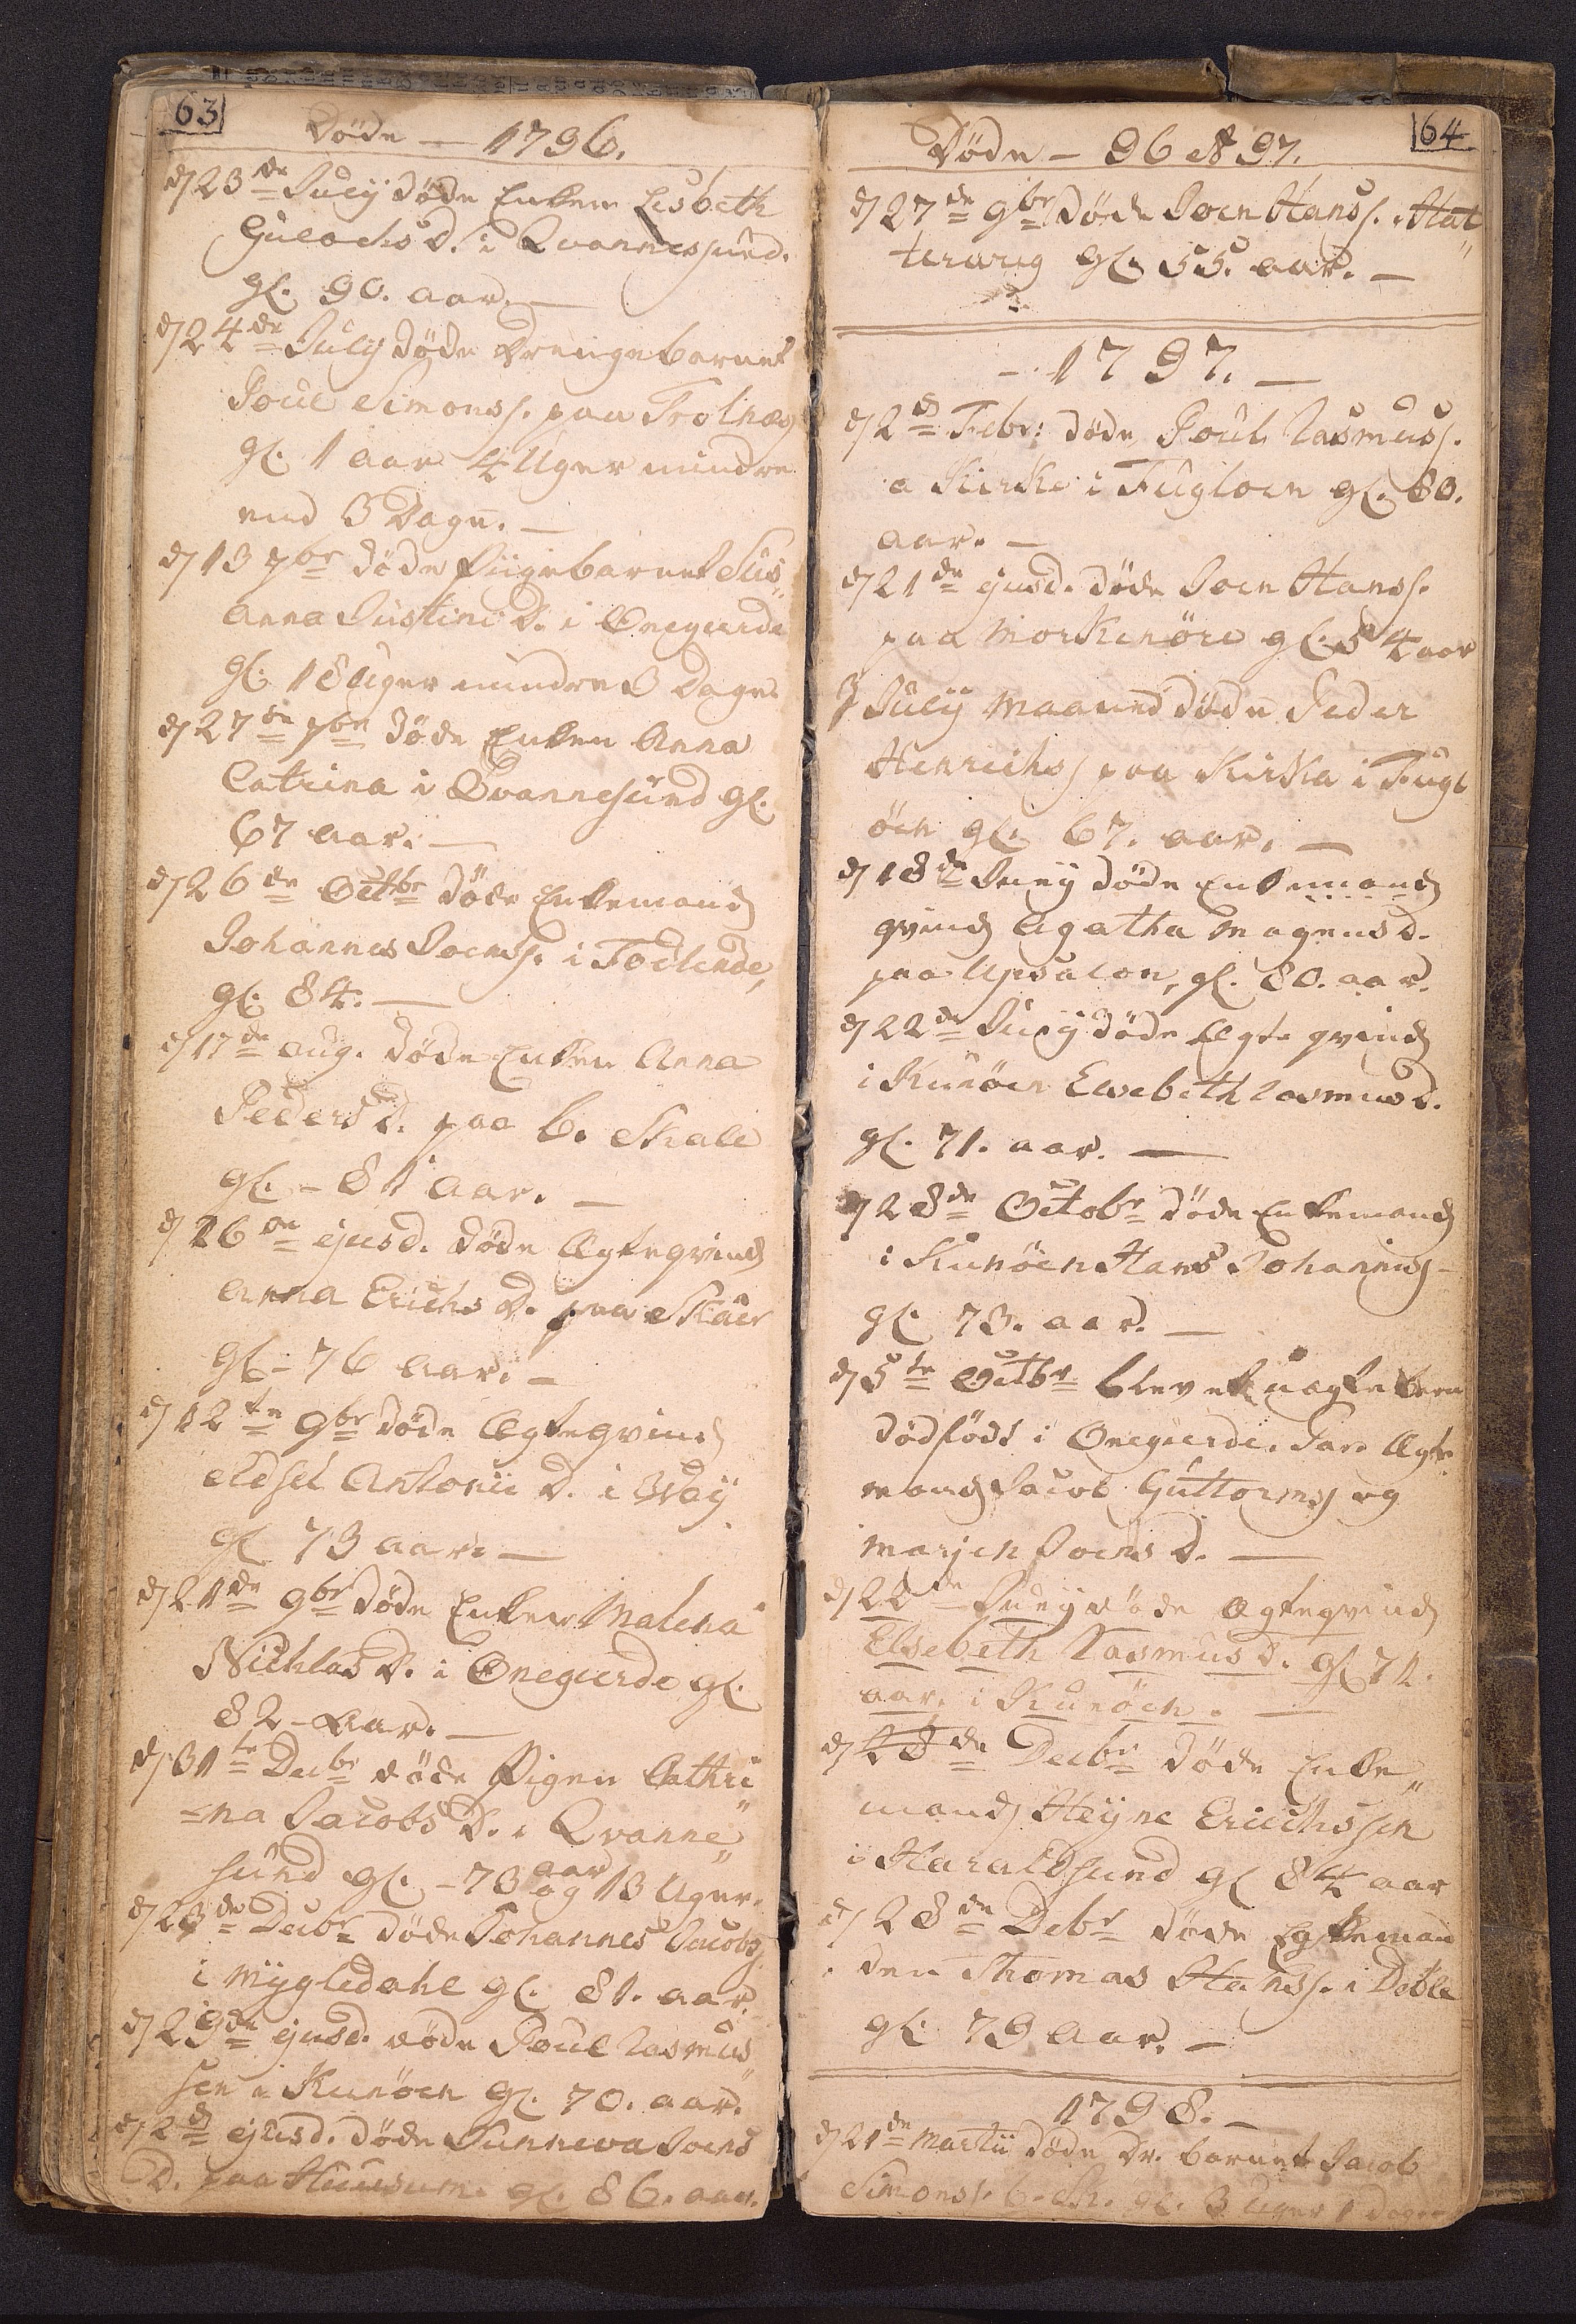 63
Döde — 1796.
d/ 23de Julij döde Enken Lisbeth
Gulochs D. i Qvannesund.
gl. 90. aar. —
d/ 24de Julij döde Drengebarnet
Poul Simons s. paa Trolnæs
gl. 1 aar 4 Uger mindre
end 3 Dage. —
d/ 13 7br döde Piigebarnet Sus„
anna Justini D. i Onegierde
gl. 18 Uger mindre 3 Dage.
d/ 27de 7br döde Enken Anna
Catrina i Qvannesund gl.
67 aar. —
d/ 26de Octbr döde Enkemand
Johannes Joens s. i
gl. 84. —
d/ 17de aug. döde Enken Anna
Peders D. paa b. Skale
gl. – 81 aar. —
d/ 16de ejusd. döde Ægteqvind
Anna Erichs D. paa Skäer
gl – 76 aar. —
d/ 12te 9br döde Ægteqvind
Edsel Antonii D. i Waÿ
gl 73 aar. —
d/ 21de 9br döde Enken Malena
Nichlas D. i Onegierde gl.
82 – Aar. —
d/ 31te Decbr döde Pigen Cathri
=na Jacobs D. i Qvanne„
sund gl. – 73 aar og 13 Uger.
d/ 23de Decbr döde Johannes Jacobs s.
i Mÿgledahl gl. 81. aar.
d/ 29de ejusd. döde Poul Rasmus„
sen i Kunöen gl. 70. aar.
d/ 2d ejusd. döde Sunneva Joens
D. paa Huusum. gl. 86. aar.
64
Döde — 96 & 97.
d/ 27de 9br döde Joen Hans s. i Hat„
terarig gl. 55. aar. —
— 1797. —
d/ 2d Febr: döde Poul Rasmus s.
a Kirke i Fugloen gl. 80.
aar. —
d/ 21de ejusd. döde Joen Hans s.
paa Morkenöre gl. 54 aar
J Julij Maaned döde Peder
Henrichs s paa Kirka i Fugl
öen gl. 67. aar. —
d/ 18de Junij döde Enkemand
qvind Agatha Magens d.
paa Upsalon, gl. 80. aar.
d/ 22de Junij döde Ægte qvind
i Kunöen Elsebeth Rasmus d.
gl. 71. aar. —
d/ 28de Octobr döde Enkemand
i Kunöen Hans Johannis s –
gl. 73. aar. —
d/ 5te Octbr blev et uægte barn
dödfödt i Onegierde. Par. Ægte
mand Jacob Guttorms s og
Marjen Joens D. —
d/ 22de Junij döde Ægteqvind
Elsebeth Rasmus d. gl 71.
aar. i Kunöen. —
d/ 28de Decbr döde Enke„
mand Heÿne Erichssen
i Haraldsund gl 84 aar
d/ 28de Debr döde Egteman
den Thomas Hans s. i Deble
gl. 79 aar. —
1798. —
d/ 21de Martii döde Dr. barnet Jacob
Simons s. b. Sk. gl. 3 Uger 1 dag